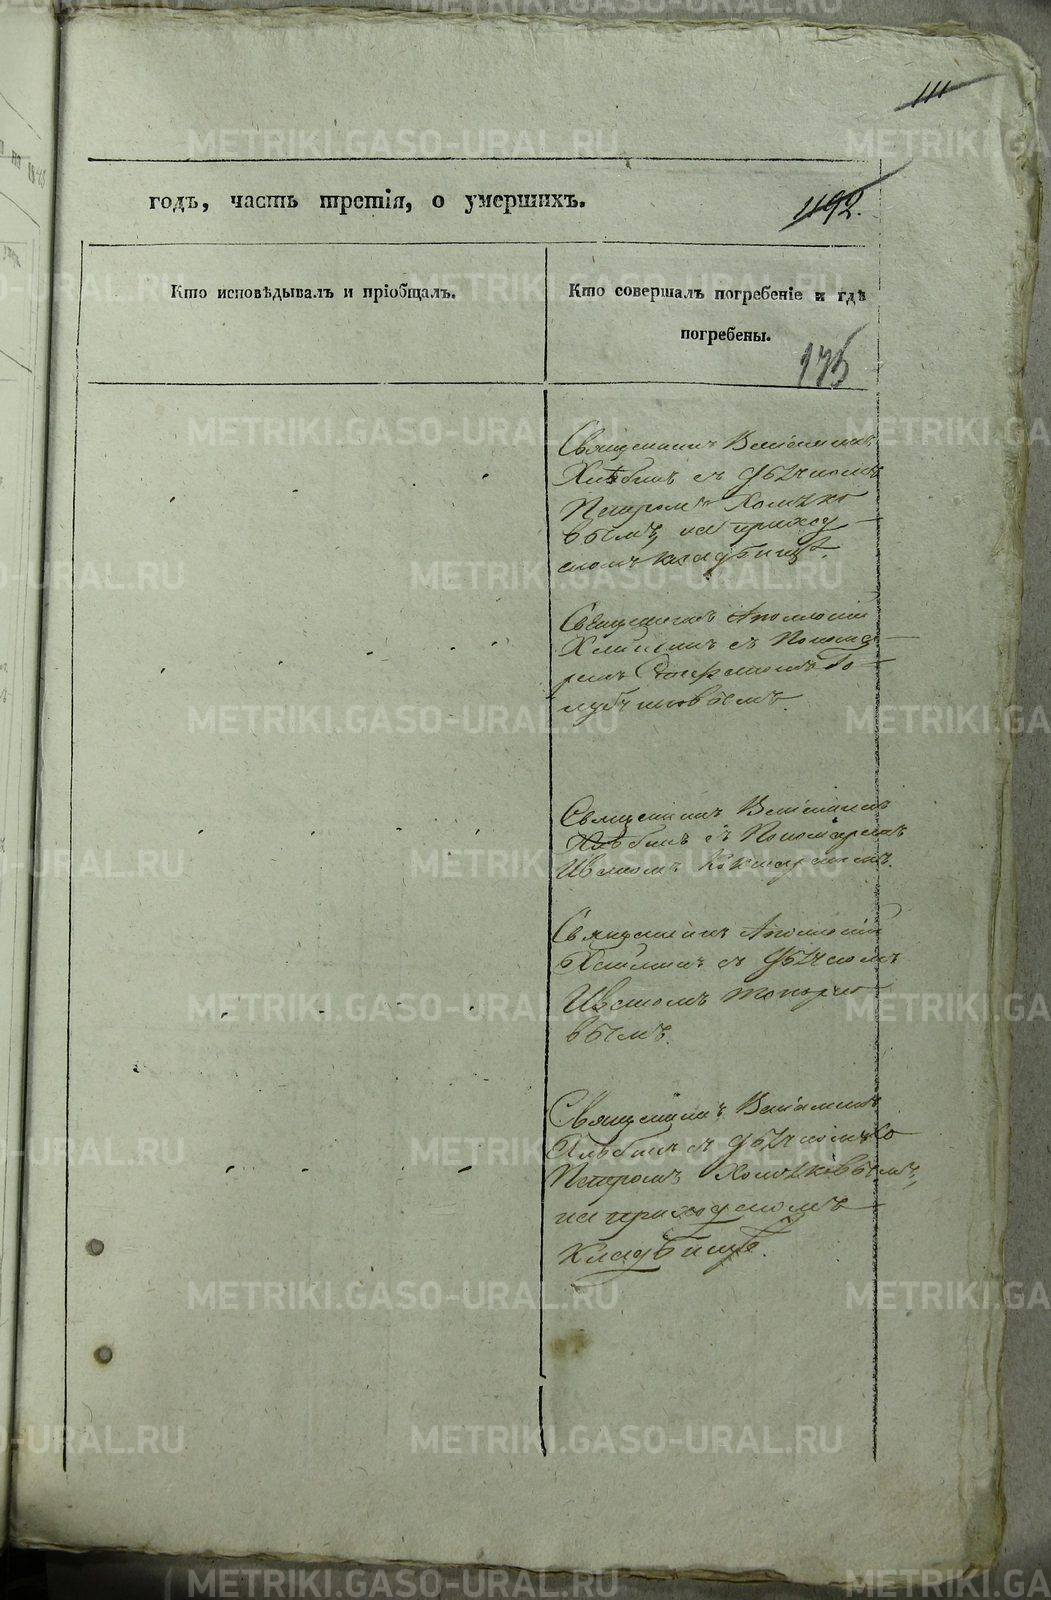 111
1192.
годъ, часть третія, о умершихъ.
Кто исповѣдывалъ и пріобщалъ.
Кто совершалъ погребеніе и гдѣ
погребены.
175
Священникъ Веніаминъ
Хлѣбинъ съ Дьячкомъ
Петромъ Хомяко
вымъ, на приход
скомъ кладбищѣ.
Священникъ Аполлоній
съ Понома
ремъ Стефаномъ Го
лубчиковымъ.
Священникъ Веніаминъ
Хлѣбинъ съ Пономаремъ
Иваномъ
Священникъ Аполлоній
съ Дьячкомъ
Иваномъ Топорко
вымъ.
Священникъ Веніаминъ
Хлѣбинъ съ Дьячкомъ
Петромъ Хомяковымъ,
на приходскомъ
кладбищѣ.
METRIKI.GASO-URAL.RU